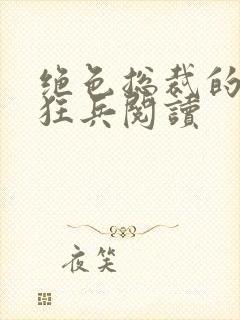 绝色总裁的
狂兵閱讀
夜笑